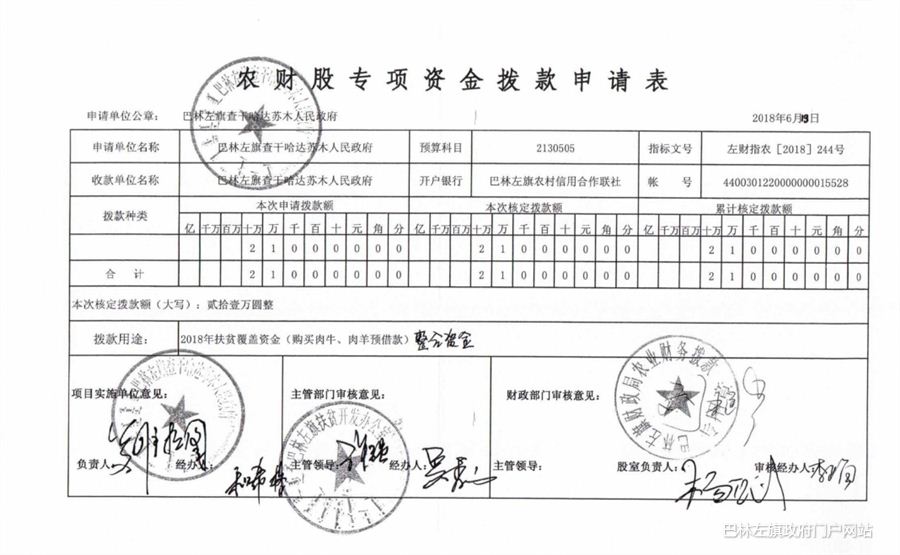 农财股专项资金拨款申请表
申请单位公章： 巴林左旗查干哈达苏木人民政府 2018年6月13日
申请单位名称 巴林左旗查干哈达苏木人民政府 预算科目 2130505 指标文号 左财指农［2018］244号
收款单位名称 巴林左旗查干哈达苏木人民政府 开户银行 巴林左旗农村信用合作联社 帐 号 4400301220000000015528
拨款种类 本次申请拨款额 本次核定拨款额 累计核定拨款额
亿 千万 百万 十万 万 千 百 十 元 角 分 亿 千万 百万 十万 万 千 百 十 元 角 分 亿 千万 百万 十万 万 千 百 十 元 角 分
2 1 0 0 0 0 0 0 2 1 0 0 0 0 0 0 2 1 0 0 0 0 0 0
合 计 2 1 0 0 0 0 0 0 2 1 0 0 0 0 0 0 2 1 0 0 0 0 0 0
本次核定拨款额（大写）：贰拾壹万圆整
拨款用途： 2018年扶贫覆盖资金（购买肉牛、肉羊预借款）整合资金
项目实施单位意见： 主管部门审核意见： 财政部门审核意见：
巴林左旗财政局农业财务拨款
巴林左旗扶贫开发办公室
负责人： 经办人： 主管领导： 经办人： 主管领导： 股室负责人： 审核经办人：
巴林左旗政府门户网站